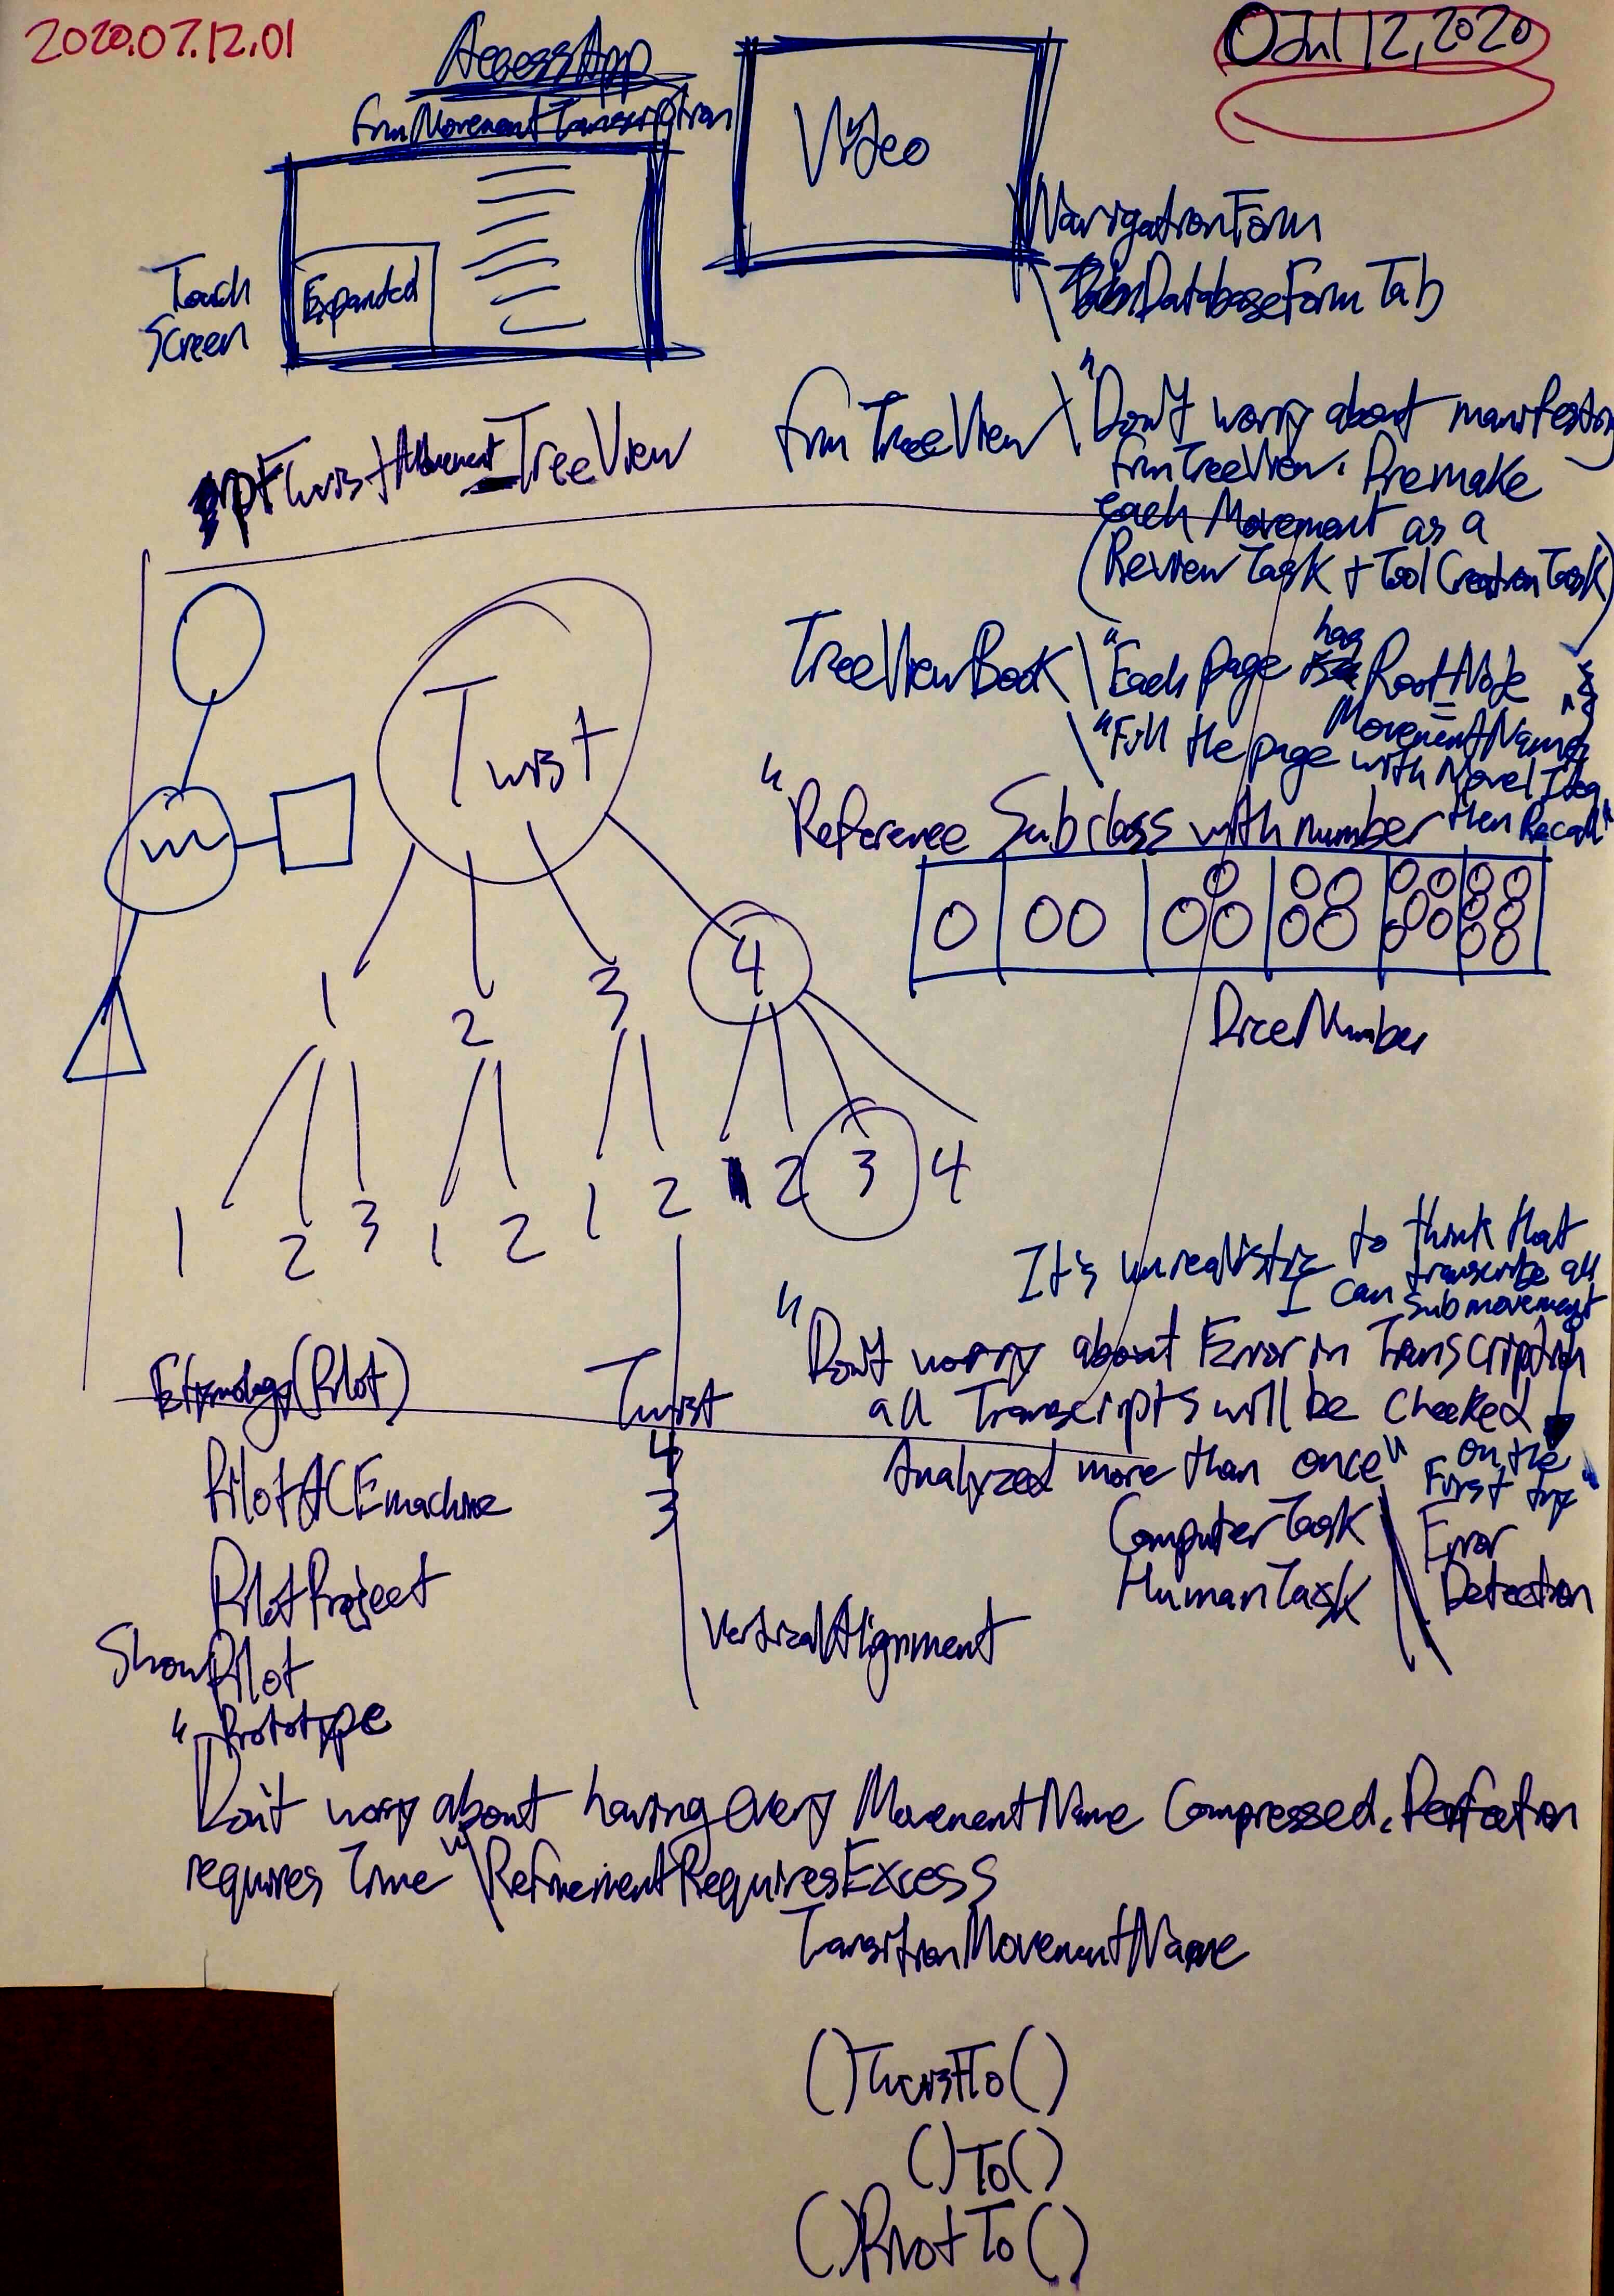 2020.07.12.01
Jul 12, 2020
AccessApp
frmMovementTranscription
Video
Expanded
Touch
Screen
NavigationForm
DatabaseFormTab
TwistMovement_TreeView
frmTreeView \ "Don't worry about
frmTreeView. Premake
each Movement as a
(ReviewTask + ToolCreationTask)
TreeViewBook \ "Each page has RootNode
=
MovementName
\ "Fill the page with Novel Idea
then Recall"
"Reference Subclass with number
DiceNumber
m
Twist
1 2 3 4
1 2 3 1 2 1 2 1 2 3 4
It's unrealistic to think that
I can transcribe all
submovement
on the
First try"
"Don't worry about Error in Transcription
all Transcripts will be Checked
Analyzed more than once"
ComputerTask
HumanTask
Error
Detection
Etymology(Pilot)
PilotACEmachine
PilotProject
ShowPilot
Prototype
Twist
4
3
VerticalAlignment
"Don't worry about having every MovementName Compressed. Perfection
requires Time" \ RefinementRequiresExcess
TransitionMovementName
()TwistTo()
()To()
()PivotTo()